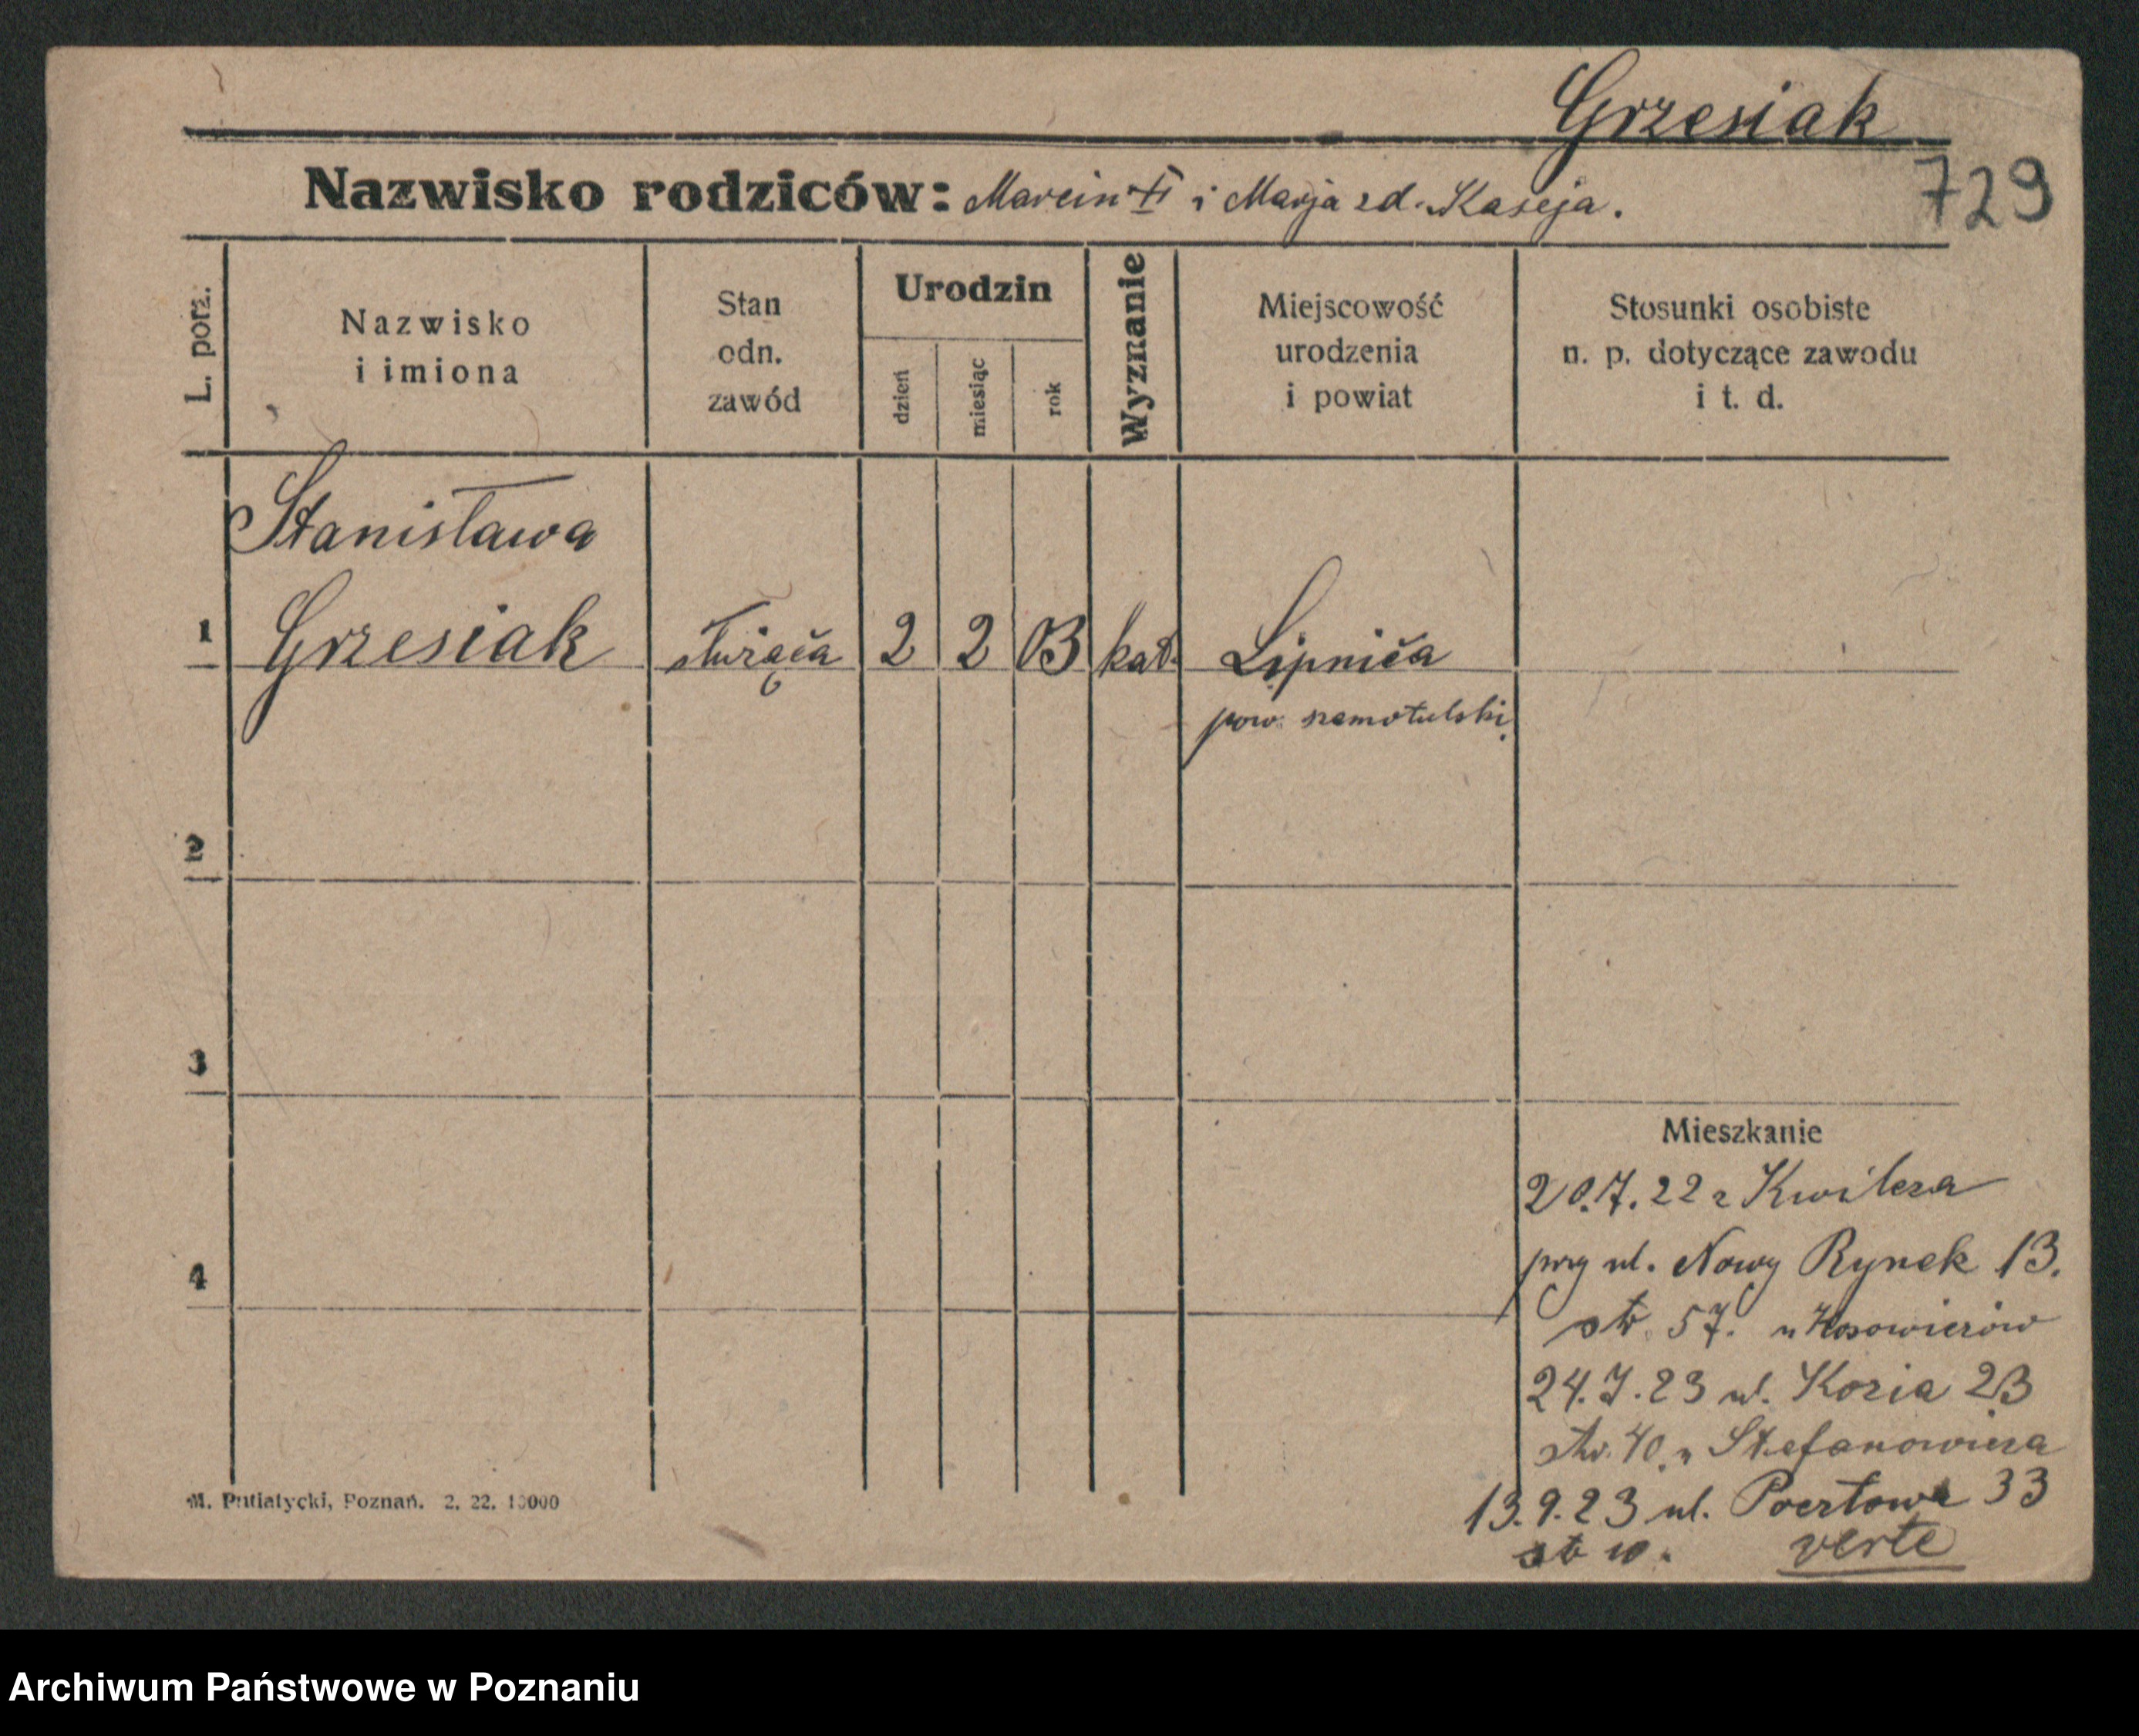 Grzesiak
729
Nazwisko rodziców: Marcin i Marja zd. Kaseja.
L. porz.
Nazwisko
i imiona
Stan
odn.
zawód
Urodzin
dzień
miesiąc
rok
Wyznanie
Miejscowość
urodzenia
i powiat
Stosunki osobiste
n. p. dotyczące zawodu
i t. d.
Stanisława
1 Grzesiak służąca 2 2 03 kat. Lipnica
pow. szamotulski
2
3
4
Mieszkanie
20.7.22 z Kwilcza
przy ul. Nowy Rynek 13.
str. 57. u
24.7.23 ul. Kozia 23
str. 40. u Stefanowicza
13.9.23 ul. Pocztowa 33
verte
M. Putiatycki, Poznań. 2. 22. 10000
Archiwum Państwowe w Poznaniu